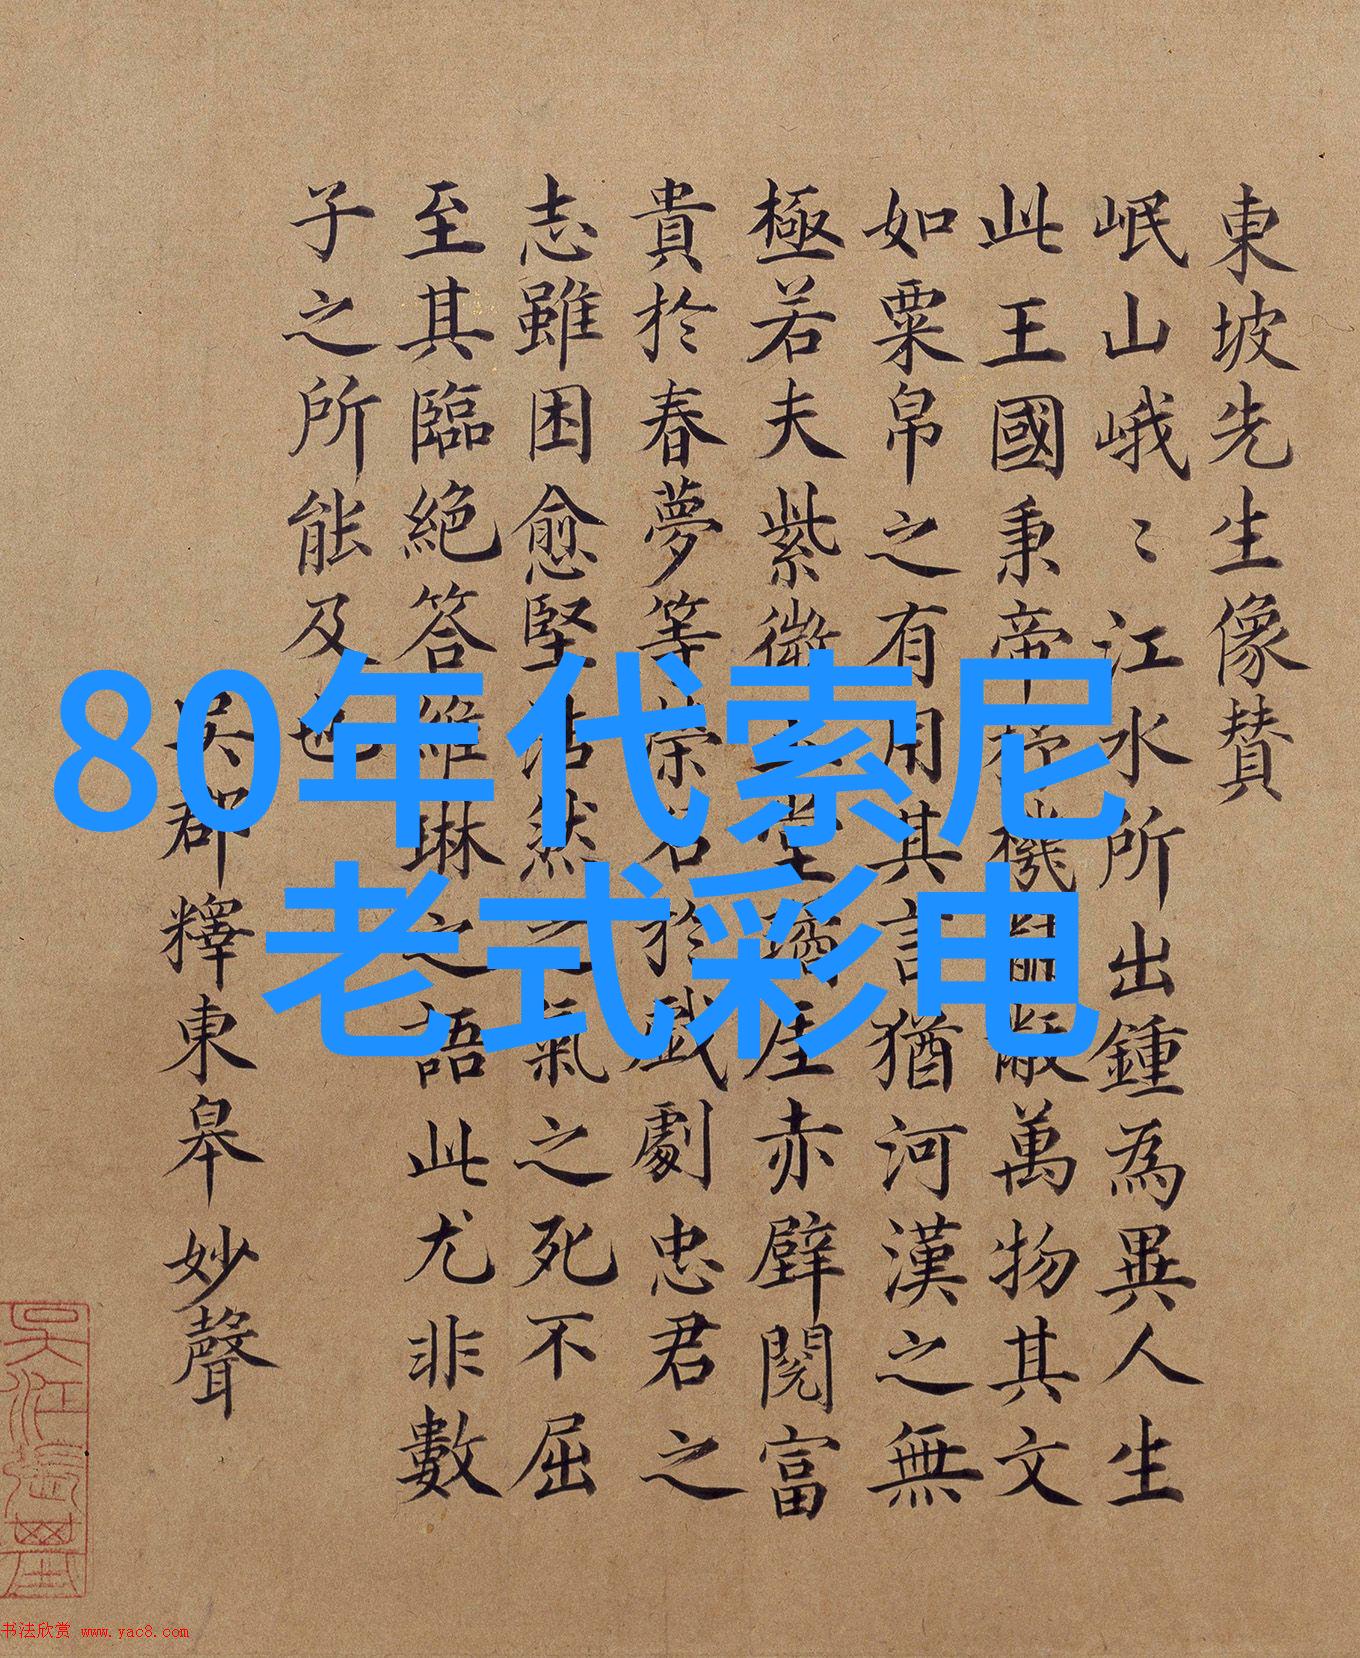 東坡先生像贊
岷山峨〻江水所出鍾為異人生
此王國秉帝杼機黼黻萬物其文
如粟帛之有用其言猶河漢之無
極若夫紫微玉堂瓊厓赤壁閱富
貴於春夢等榮名於戲劇忠君之
志雖困愈堅浩然之氣之死不屈
至其臨絕答維琳之語此尤非數
子之所能及也
吳郡釋東皋妙聲
80年代索尼
老式彩电
书法欣赏 www.yac8.com